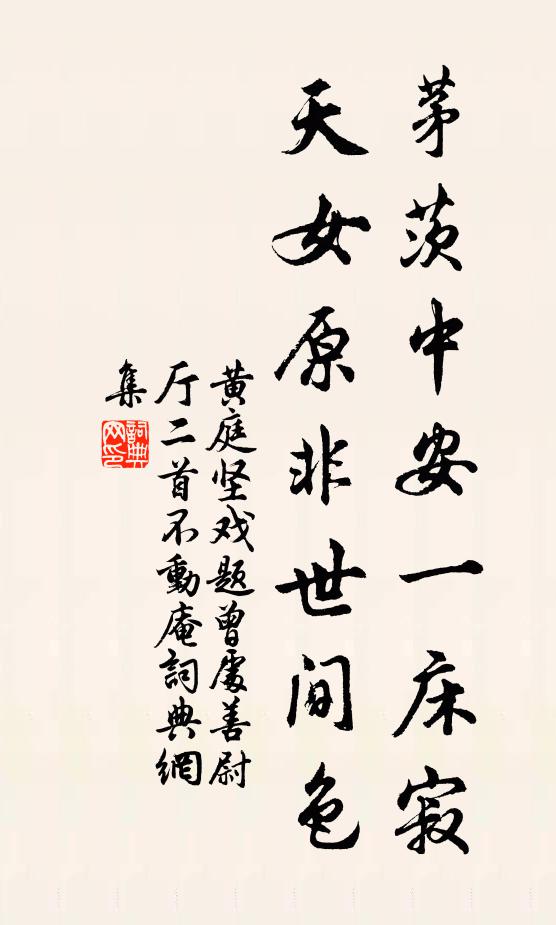 茅茨中安一床寂
天女原非世间色
黄庭坚戏题曾處善尉
厅二首不動庵詞典網
集
詞典
网印